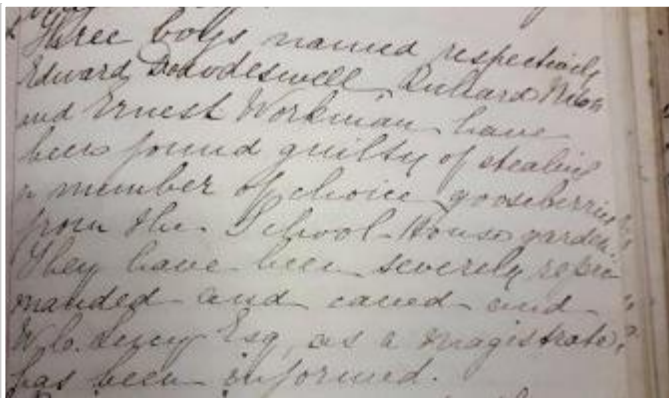 Three boys named respectively
Edward Dowdeswell Richard
and Ernest Workman have
been found guilty of stealing
a number of choice gooseberries
from the School House garden.
They have been severely repri
manded and caned and
Esq, as a magistrate,
has been informed.